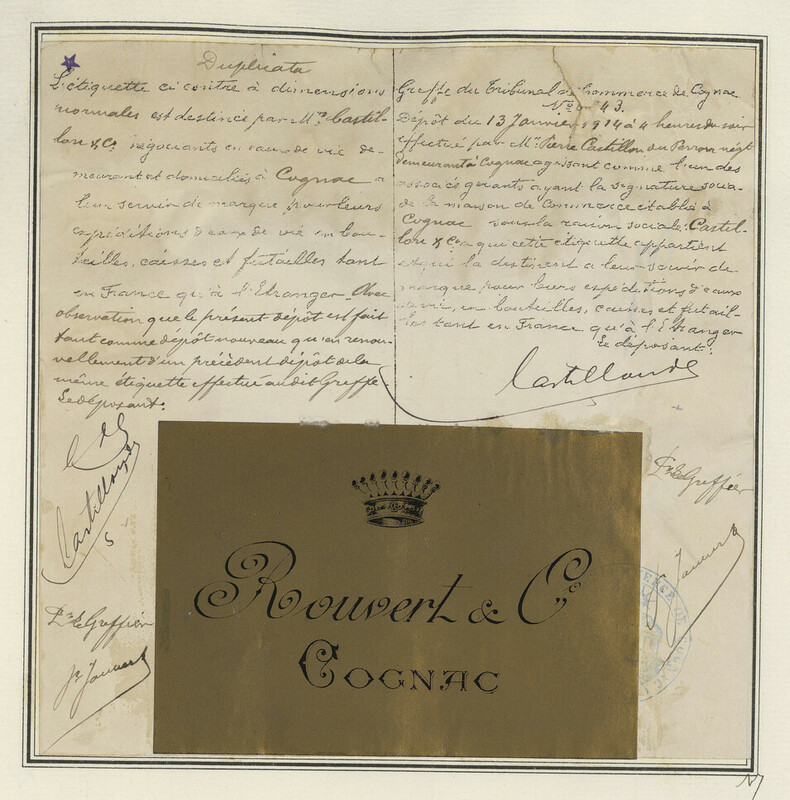 Duplicata
L'étiquette ci contre à dimensions
normales est destinée par Mrs Castil-
lon & Co négociants en eaux de vie de-
meurant et domiciliés à Cognac a
leur servir de marque pour leurs
expéditions d'eaux de vie en bou-
teilles, caisses et futailles tant
en France qu'à l'Etranger. Avec
observation que le présent dépôt est fait
tant comme dépôt nouveau qu'en renou-
vellement d'un précédent dépôt de la
même étiquette effectué audit Greffe.
Le déposant:
Castillon
Le Greffier
Greffe du Tribunal de Commerce de Cognac
No 43.
Dépôt du 13 Janvier 1914 à 4 heures du soir
effectué par Mr Pierre Castillon du Perron négt
demeurant à Cognac agissant comme l'un des
associés gérants ayant la signature socia-
le de la maison de Commerce établie à
Cognac sous la raison sociale: Castil-
lon & Co à qui cette étiquette appartient
et qui la destinent a leur servir de
marque pour leurs expéditions d'eaux
de vie, en bouteilles, caisses et futail-
les tant en France qu'à l'Etranger
Le déposant:
Castillon
Le Greffier
Rouvert & Co
COGNAC